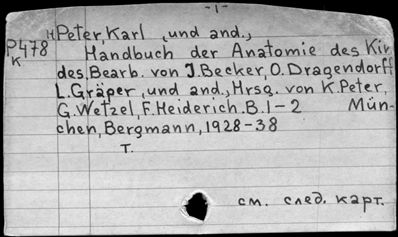 -1-
H Peter, Karl, und and.,
P478 Handbuch der Anatomie des Kin
K des, Bearb. von J. Becker, O. Dragendorff
L. Gräper, und and., Hrsg. von K. Peter,
G. Wetzel, F. Heiderich. B. 1-2 Mün-
chen, Bergmann, 1928-38
T.
см. след. карт.